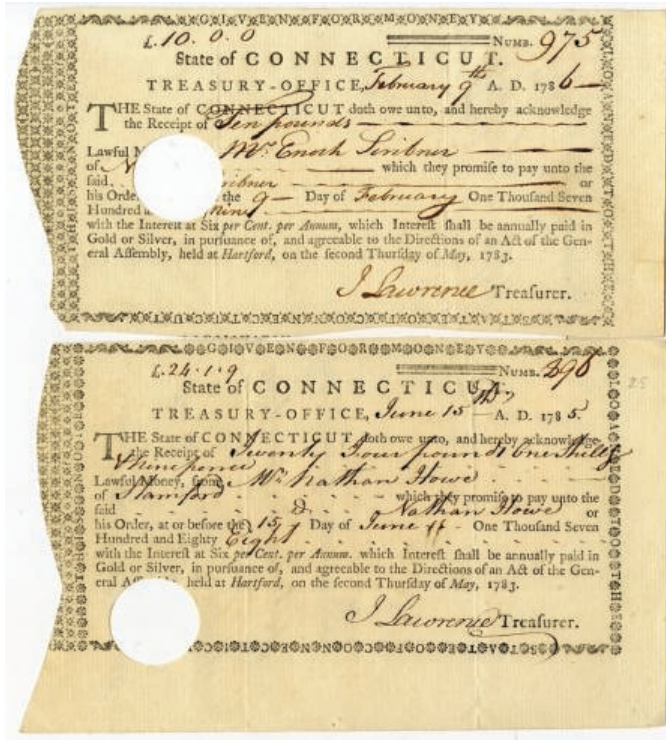 GIVEN FOR MONEY
£.10.0.0 NUMB. 975
State of CONNECTICUT.
TREASURY-OFFICE, February 9th A. D. 1786
THE State of CONNECTICUT doth owe unto, and hereby acknowledge
the Receipt of Ten pounds
Lawful Mr. Enoch Scribner
of which they promise to pay unto the
said or
his Order, the 9 Day of February One Thousand Seven
Hundred
with the Interest at Six per Cent. per Annum, which Interest shall be annually paid in
Gold or Silver, in pursuance of, and agreeable to the Directions of an Act of the Gen-
eral Assembly, held at Hartford, on the second Thursday of May, 1783.
J Lawrence Treasurer.
STATE OF CONNECTICUT
GIVEN FOR MONEY
£.24.1.9 NUMB. 298
State of CONNECTICUT.
TREASURY-OFFICE, June 15th A. D. 1785.
THE State of CONNECTICUT doth owe unto, and hereby acknowledge
the Receipt of Twenty Four pounds One shillg
& Nine pence
Lawful Money, from Mr. Nathan Howe
of Stamford which they promise to pay unto the
said Nathan Howe or
his Order, at or before the 15 Day of June One Thousand Seven
Hundred and Eighty Eight
with the Interest at Six per Cent. per Annum. which Interest shall be annually paid in
Gold or Silver, in pursuance of, and agreeable to the Directions of an Act of the Gen-
eral held at Hartford, on the second Thursday of May, 1783.
J Lawrence Treasurer.
STATE OF CONNECTICUT